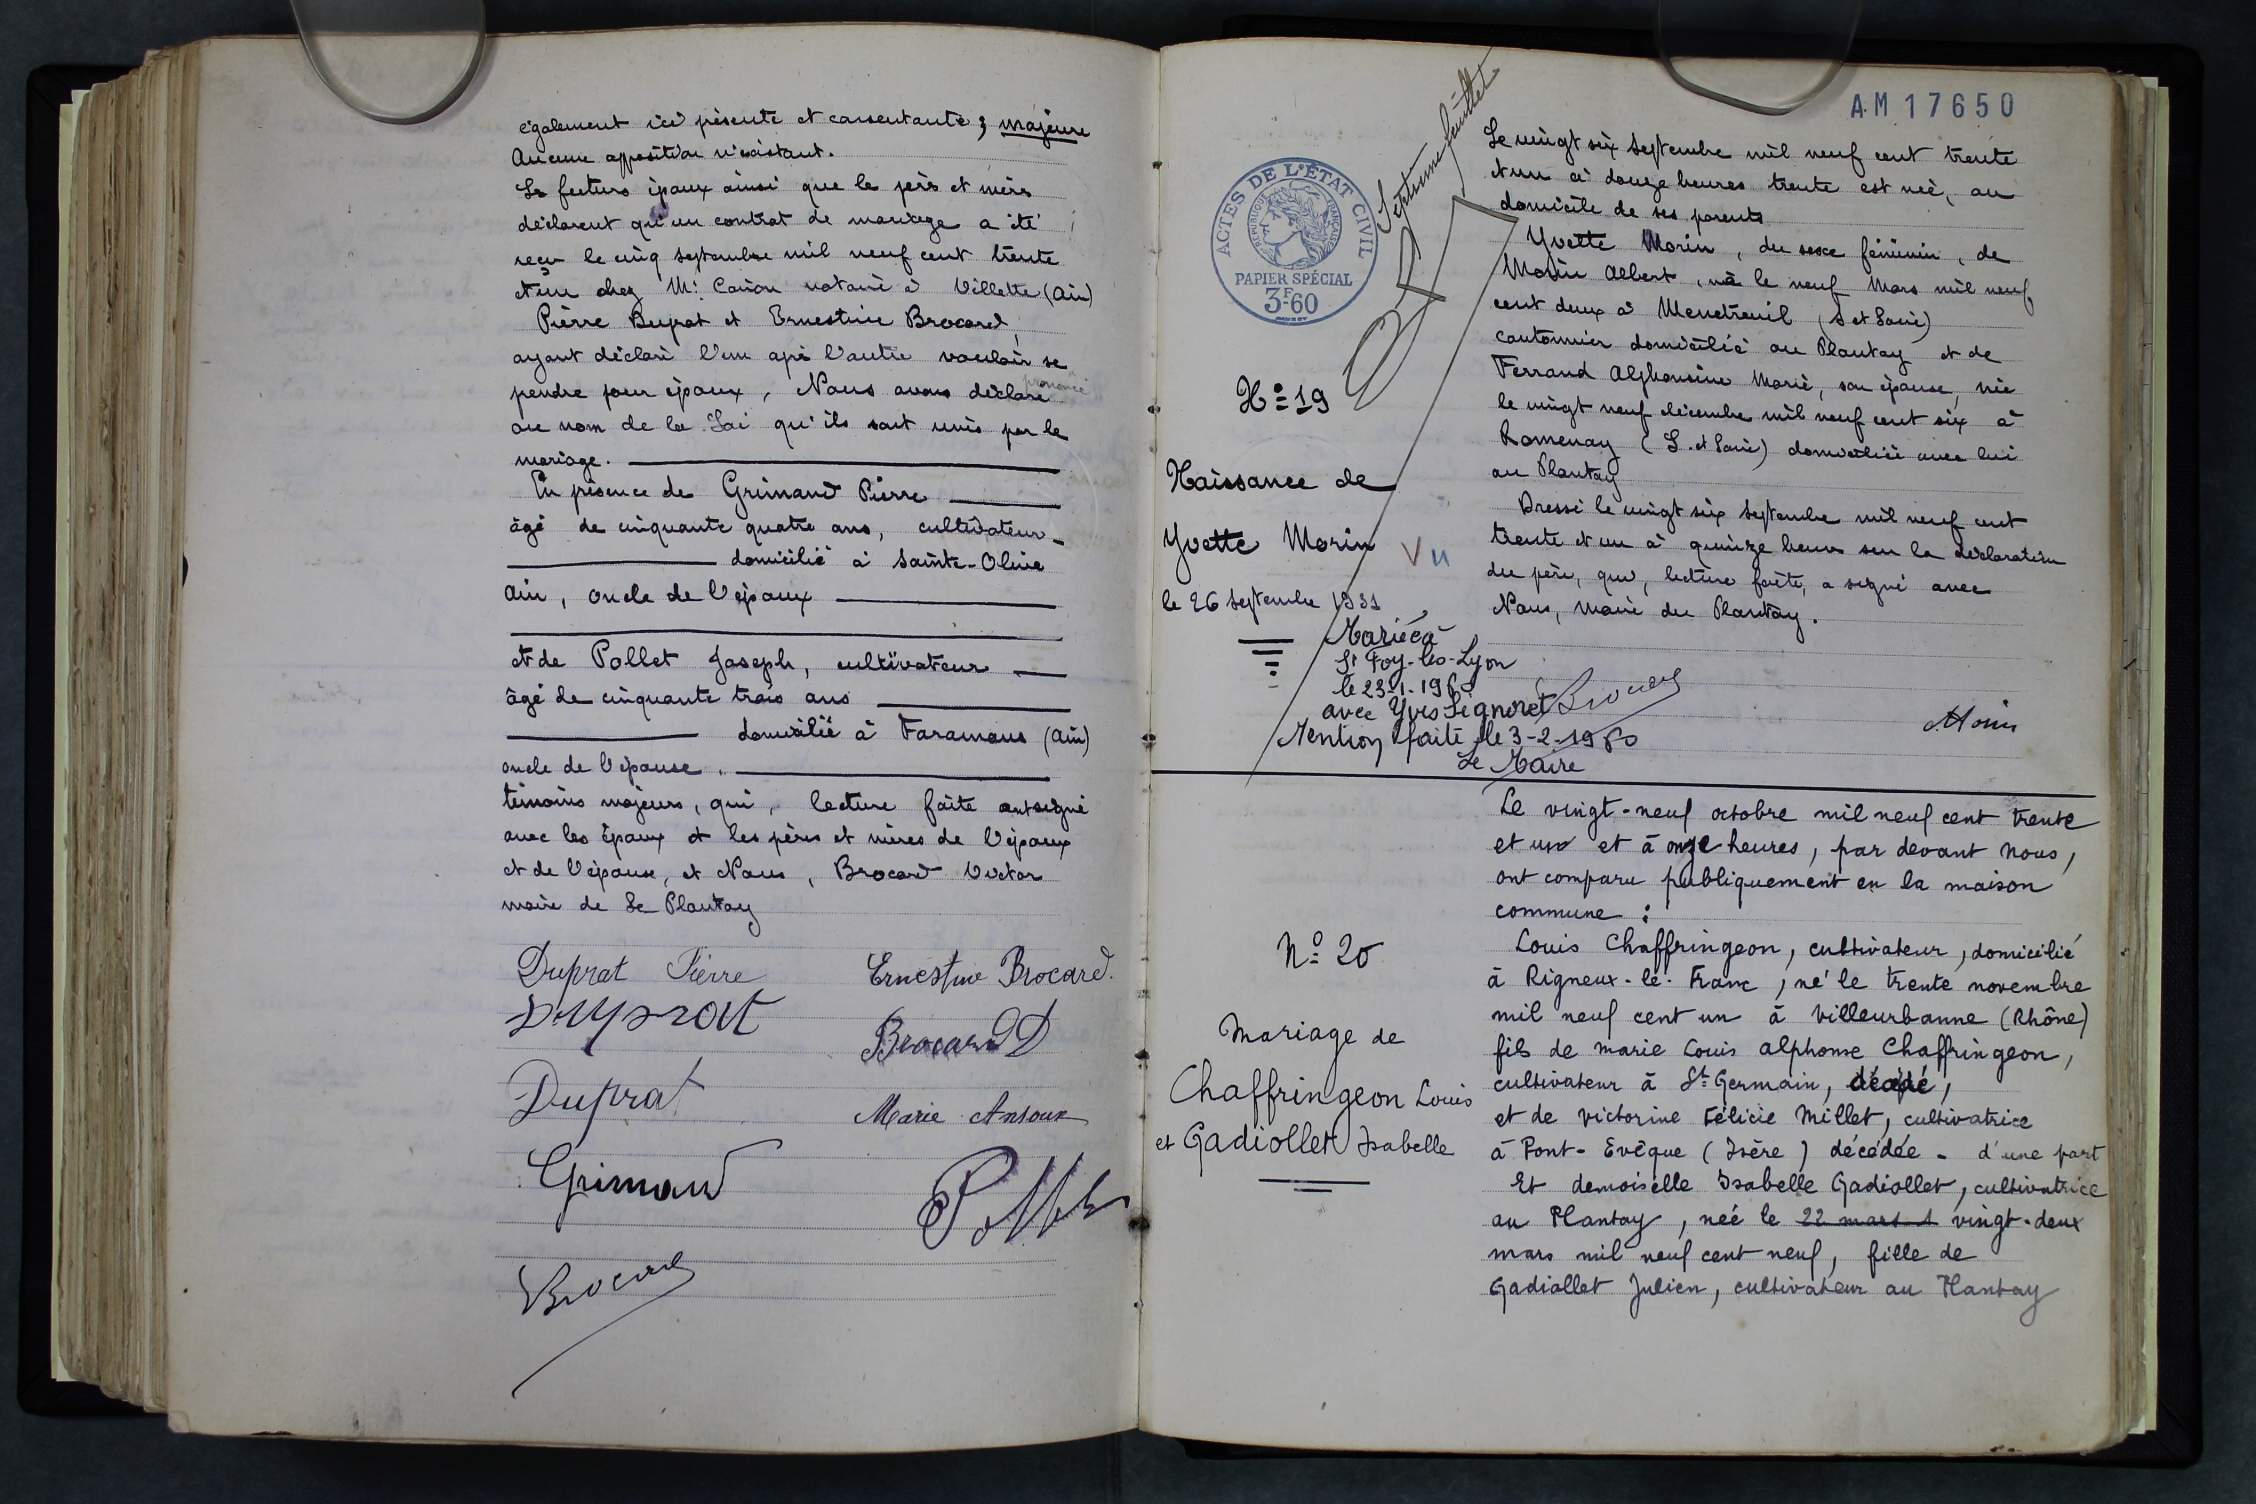 également ici présente et consentante ; majeure
Aucune opposition n'existant.
Les futurs époux ainsi que les pères et mères
déclarent qu'un contrat de mariage a été
reçu le cinq septembre mil neuf cent trente
et un chez Me notaire à Villette (Ain)
Pierre Duprat et Ernestine Brocard,
ayant déclaré l'un après l'autre vouloir se
prendre pour époux, Nous avons déclaré prononcé
au nom de la Loi qu'ils sont unis par le
mariage.
En présence de Grimaud Pierre
âgé de cinquante quatre ans, cultivateur
domicilié à Sainte-Olive
Ain, oncle de l'époux
et de Pollet Joseph, cultivateur
âgé de cinquante trois ans
domicilié à Faramans (Ain)
oncle de l'épouse.
témoins majeurs, qui, lecture faite ont signé
avec les époux et les pères et mères de l'époux
et de l'épouse, et Nous, Brocard Victor
maire de Le Plantay
Duprat Pierre Ernestine Brocard.
Duprat
Brocard D
Duprat Marie Ansoux
Grimaud Pollet
Brocard
AM 17650
Septième feuillet
ACTES DE L'ÉTAT CIVIL
RÉPUBLIQUE FRANÇAISE
PAPIER SPÉCIAL
3F60
N° 19
Naissance de
Yvette Morin
Vu
le 26 septembre 1931
Mariée à
St Foy-lès-Lyon
le 23-1-1960
avec Yves Signoret
Mention faite le 3-2-1960
Le Maire
Le vingt six septembre mil neuf cent trente
et un à douze heures trente est née, au
domicile de ses parents
Yvette Morin, du sexe féminin, de
Morin Albert, né le neuf Mars mil neuf
cent deux à Menetreuil (S et Loire)
cantonnier domicilié au Plantay et de
Ferrand Alphonsine Marie, son épouse, née
le vingt neuf décembre mil neuf cent six à
Romenay (S. et Loire) domiciliée avec lui
au Plantay
Dressé le vingt six septembre mil neuf cent
trente et un à quinze heures sur la déclaration
du père, qui, lecture faite, a signé avec
Nous, Maire du Plantay.
Brocard
Morin
N° 20
Mariage de
Chaffringeon Louis
et Gadiollet Isabelle
Le vingt-neuf octobre mil neuf cent trente
et un et à onze heures, par devant nous,
ont comparu publiquement en la maison
commune :
Louis Chaffringeon, cultivateur, domicilié
à Rigneux-le-Franc, né le trente novembre
mil neuf cent un à Villeurbanne (Rhône)
fils de Marie Louis Alphonse Chaffringeon,
cultivateur à St Germain, décédé,
et de Victorine Félicie Millet, cultivatrice
à Pont-Evêque (Isère) décédée - d'une part
Et demoiselle Isabelle Gadiollet, cultivatrice
au Plantay, née le 22 mars 1 vingt-deux
mars mil neuf cent neuf, fille de
Gadiollet Julien, cultivateur au Plantay